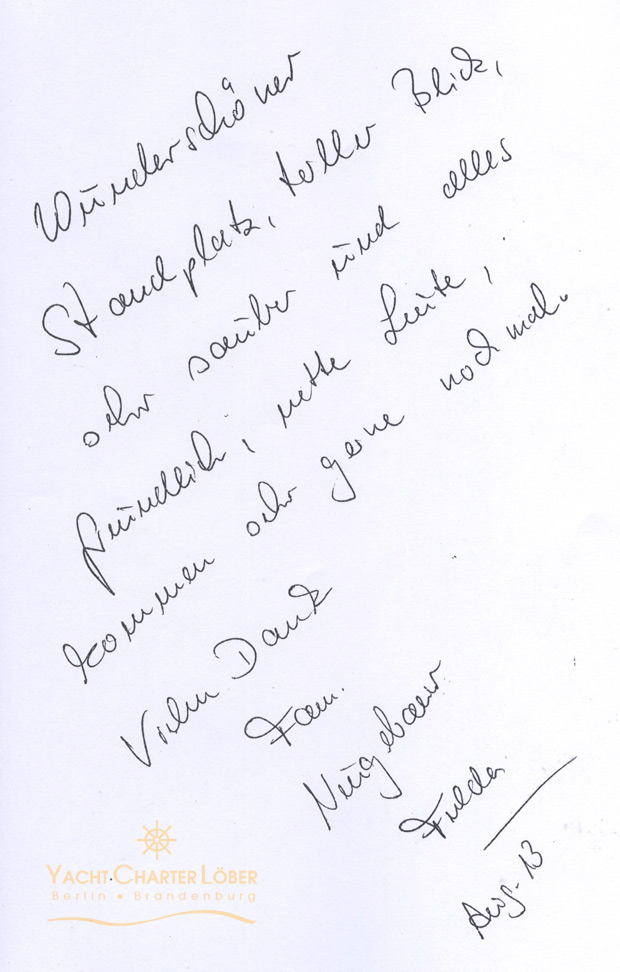 Wunderschöner
Standplatz, toller Blick,
sehr sauber und alles
freundlich, nette Leute,
kommen sehr gerne noch mal.
Vielen Dank
Fam.
Neugebauer
Fulda
Aug. 13
YACHT-CHARTER LÖBER
Berlin • Brandenburg